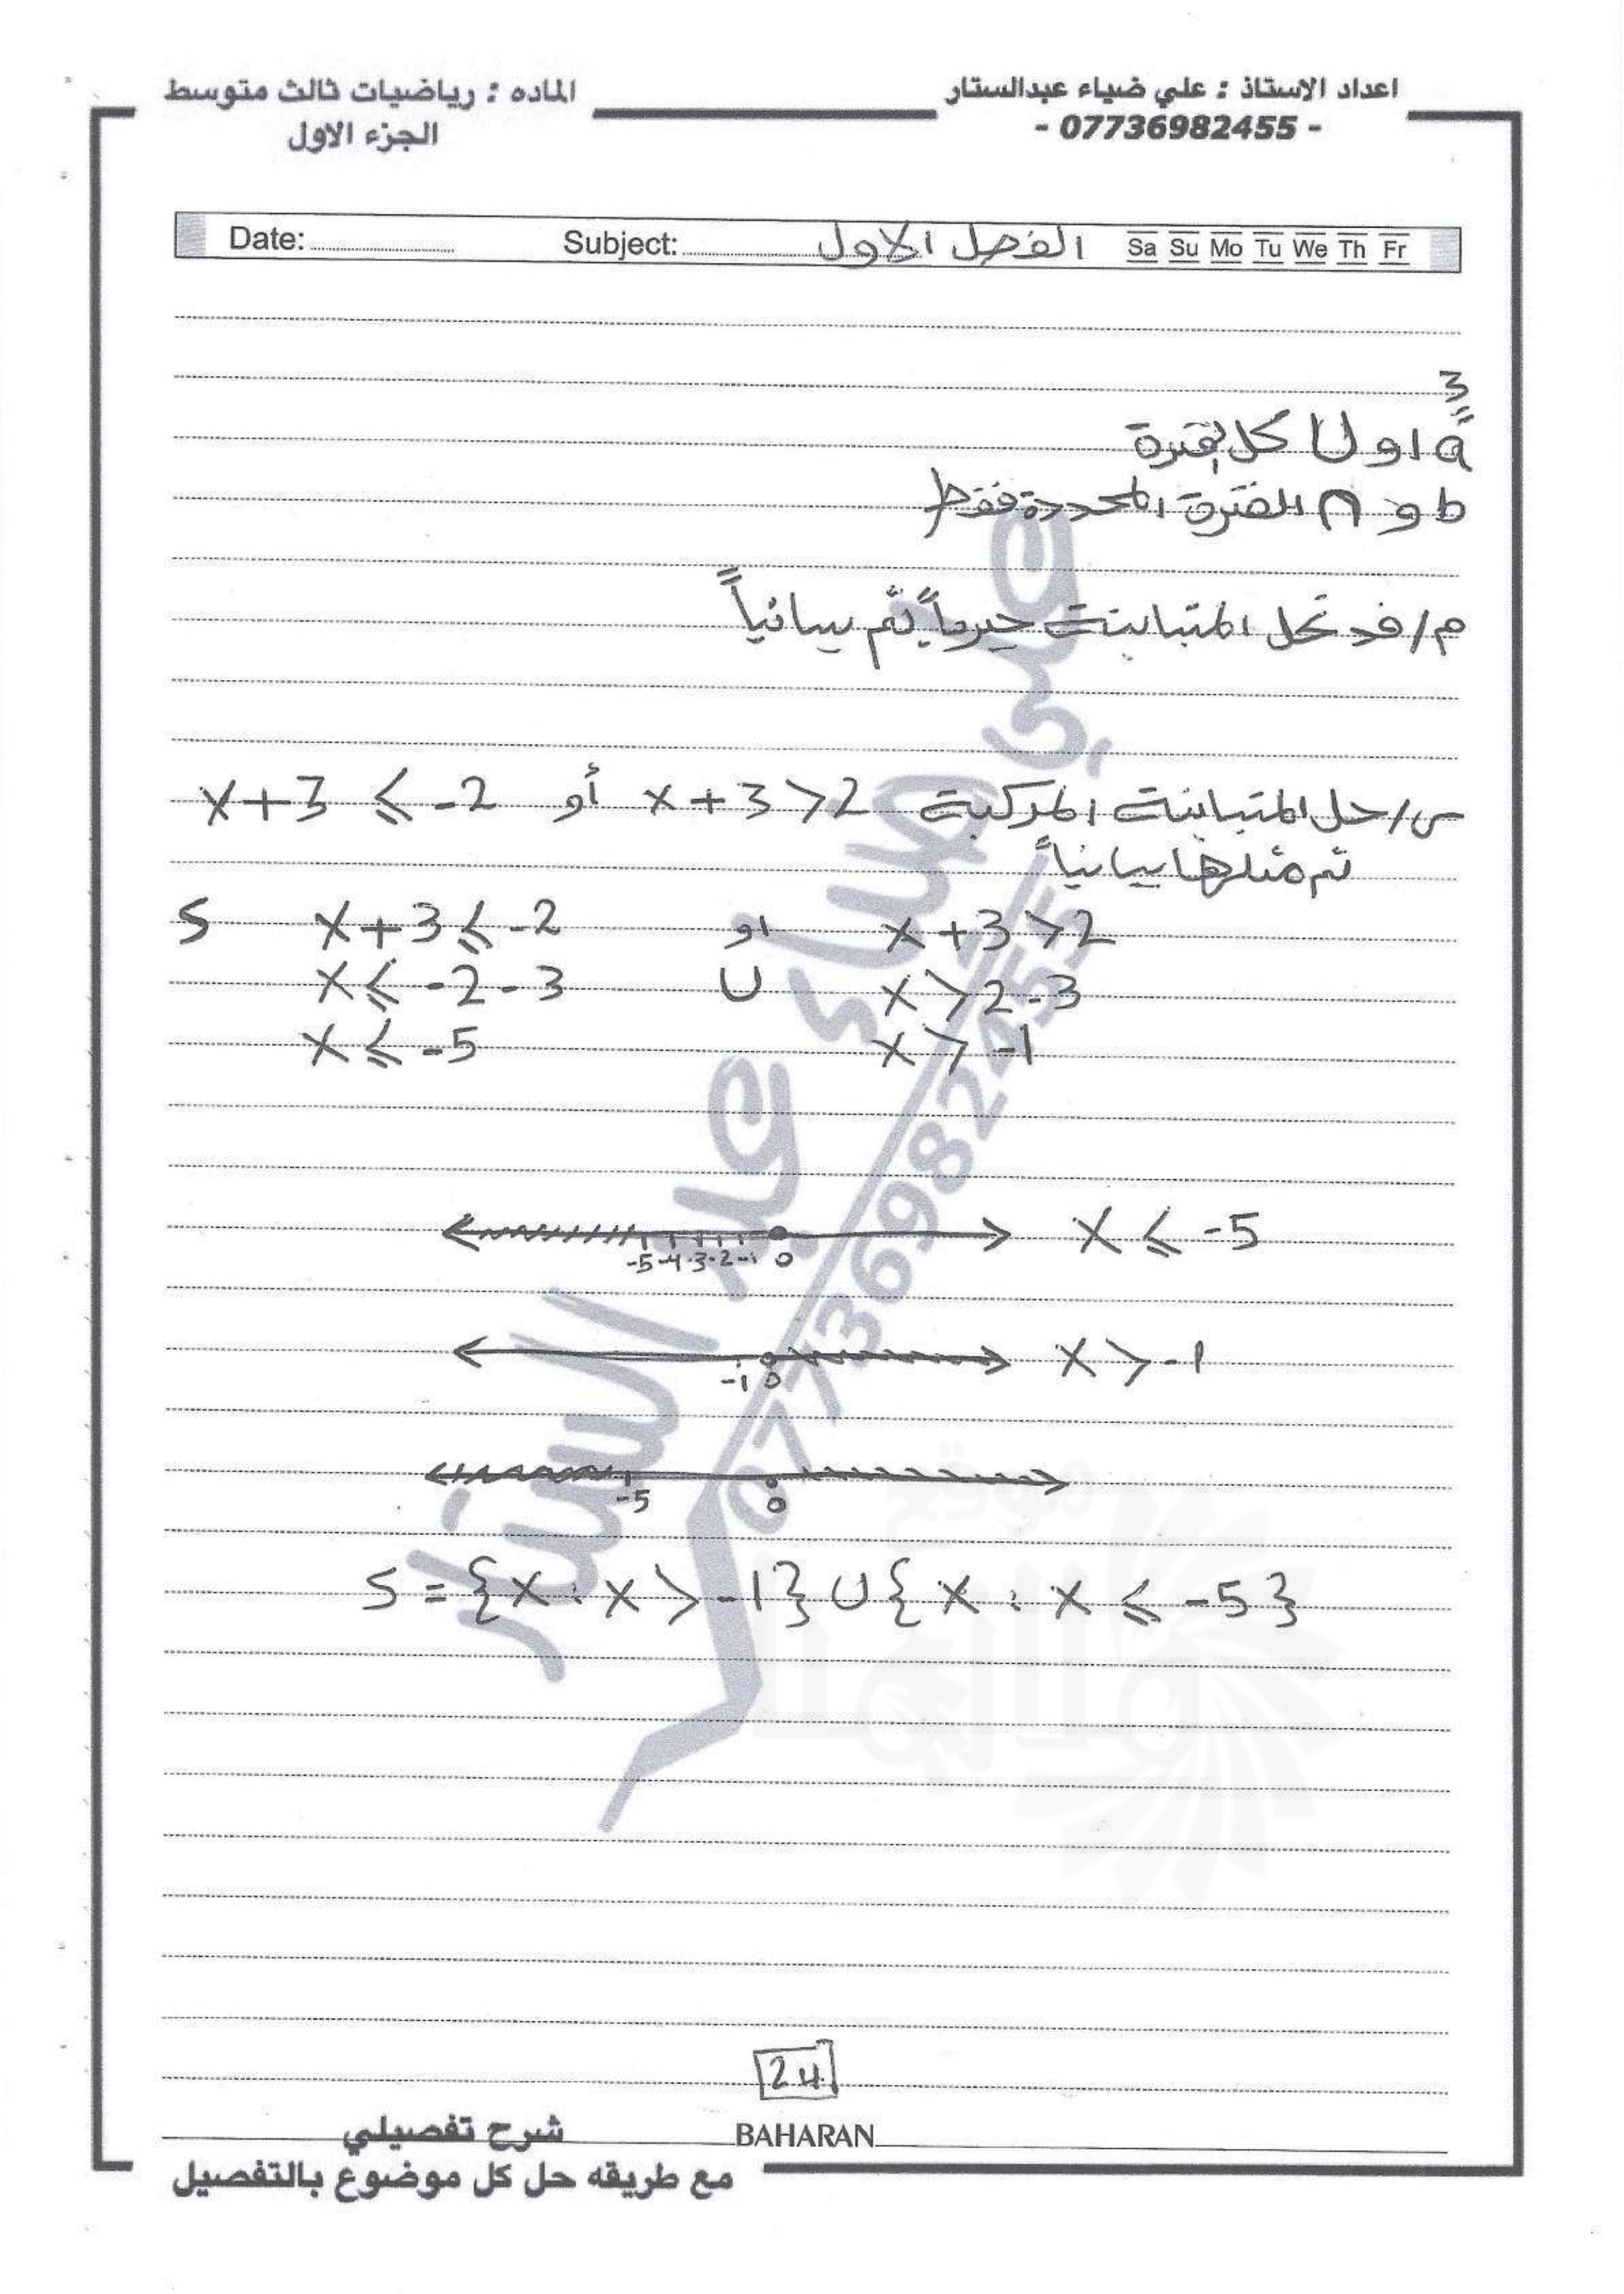 اعداد الاستاذ : علي ضياء عبدالستار
- 07736982455 -
الماده : رياضيات ثالث متوسط
الجزء الاول
Date: Subject: الفصل الاول Sa Su Mo Tu We Th Fr
a او U كل فترة
b و ∩ الفترة المحددة فقط
م/ قد تحل المتباينة جبرياً ثم بيانياً
س/ حل المتباينة المركبة x+3>2 أو x+3 ≤ -2
ثم مثلها بيانياً
S x+3 ≤ -2 او x+3>2
x ≤ -2-3 U x>2-3
x ≤ -5 x > -1
-5 -4 -3 -2 -1 0 x ≤ -5
-1 0 x > -1
-5 0
S = {x : x > -1} U {x : x ≤ -5}
علي ضياء عبد الستار
07736982455
24
BAHARAN
شرح تفصيلي
مع طريقه حل كل موضوع بالتفصيل